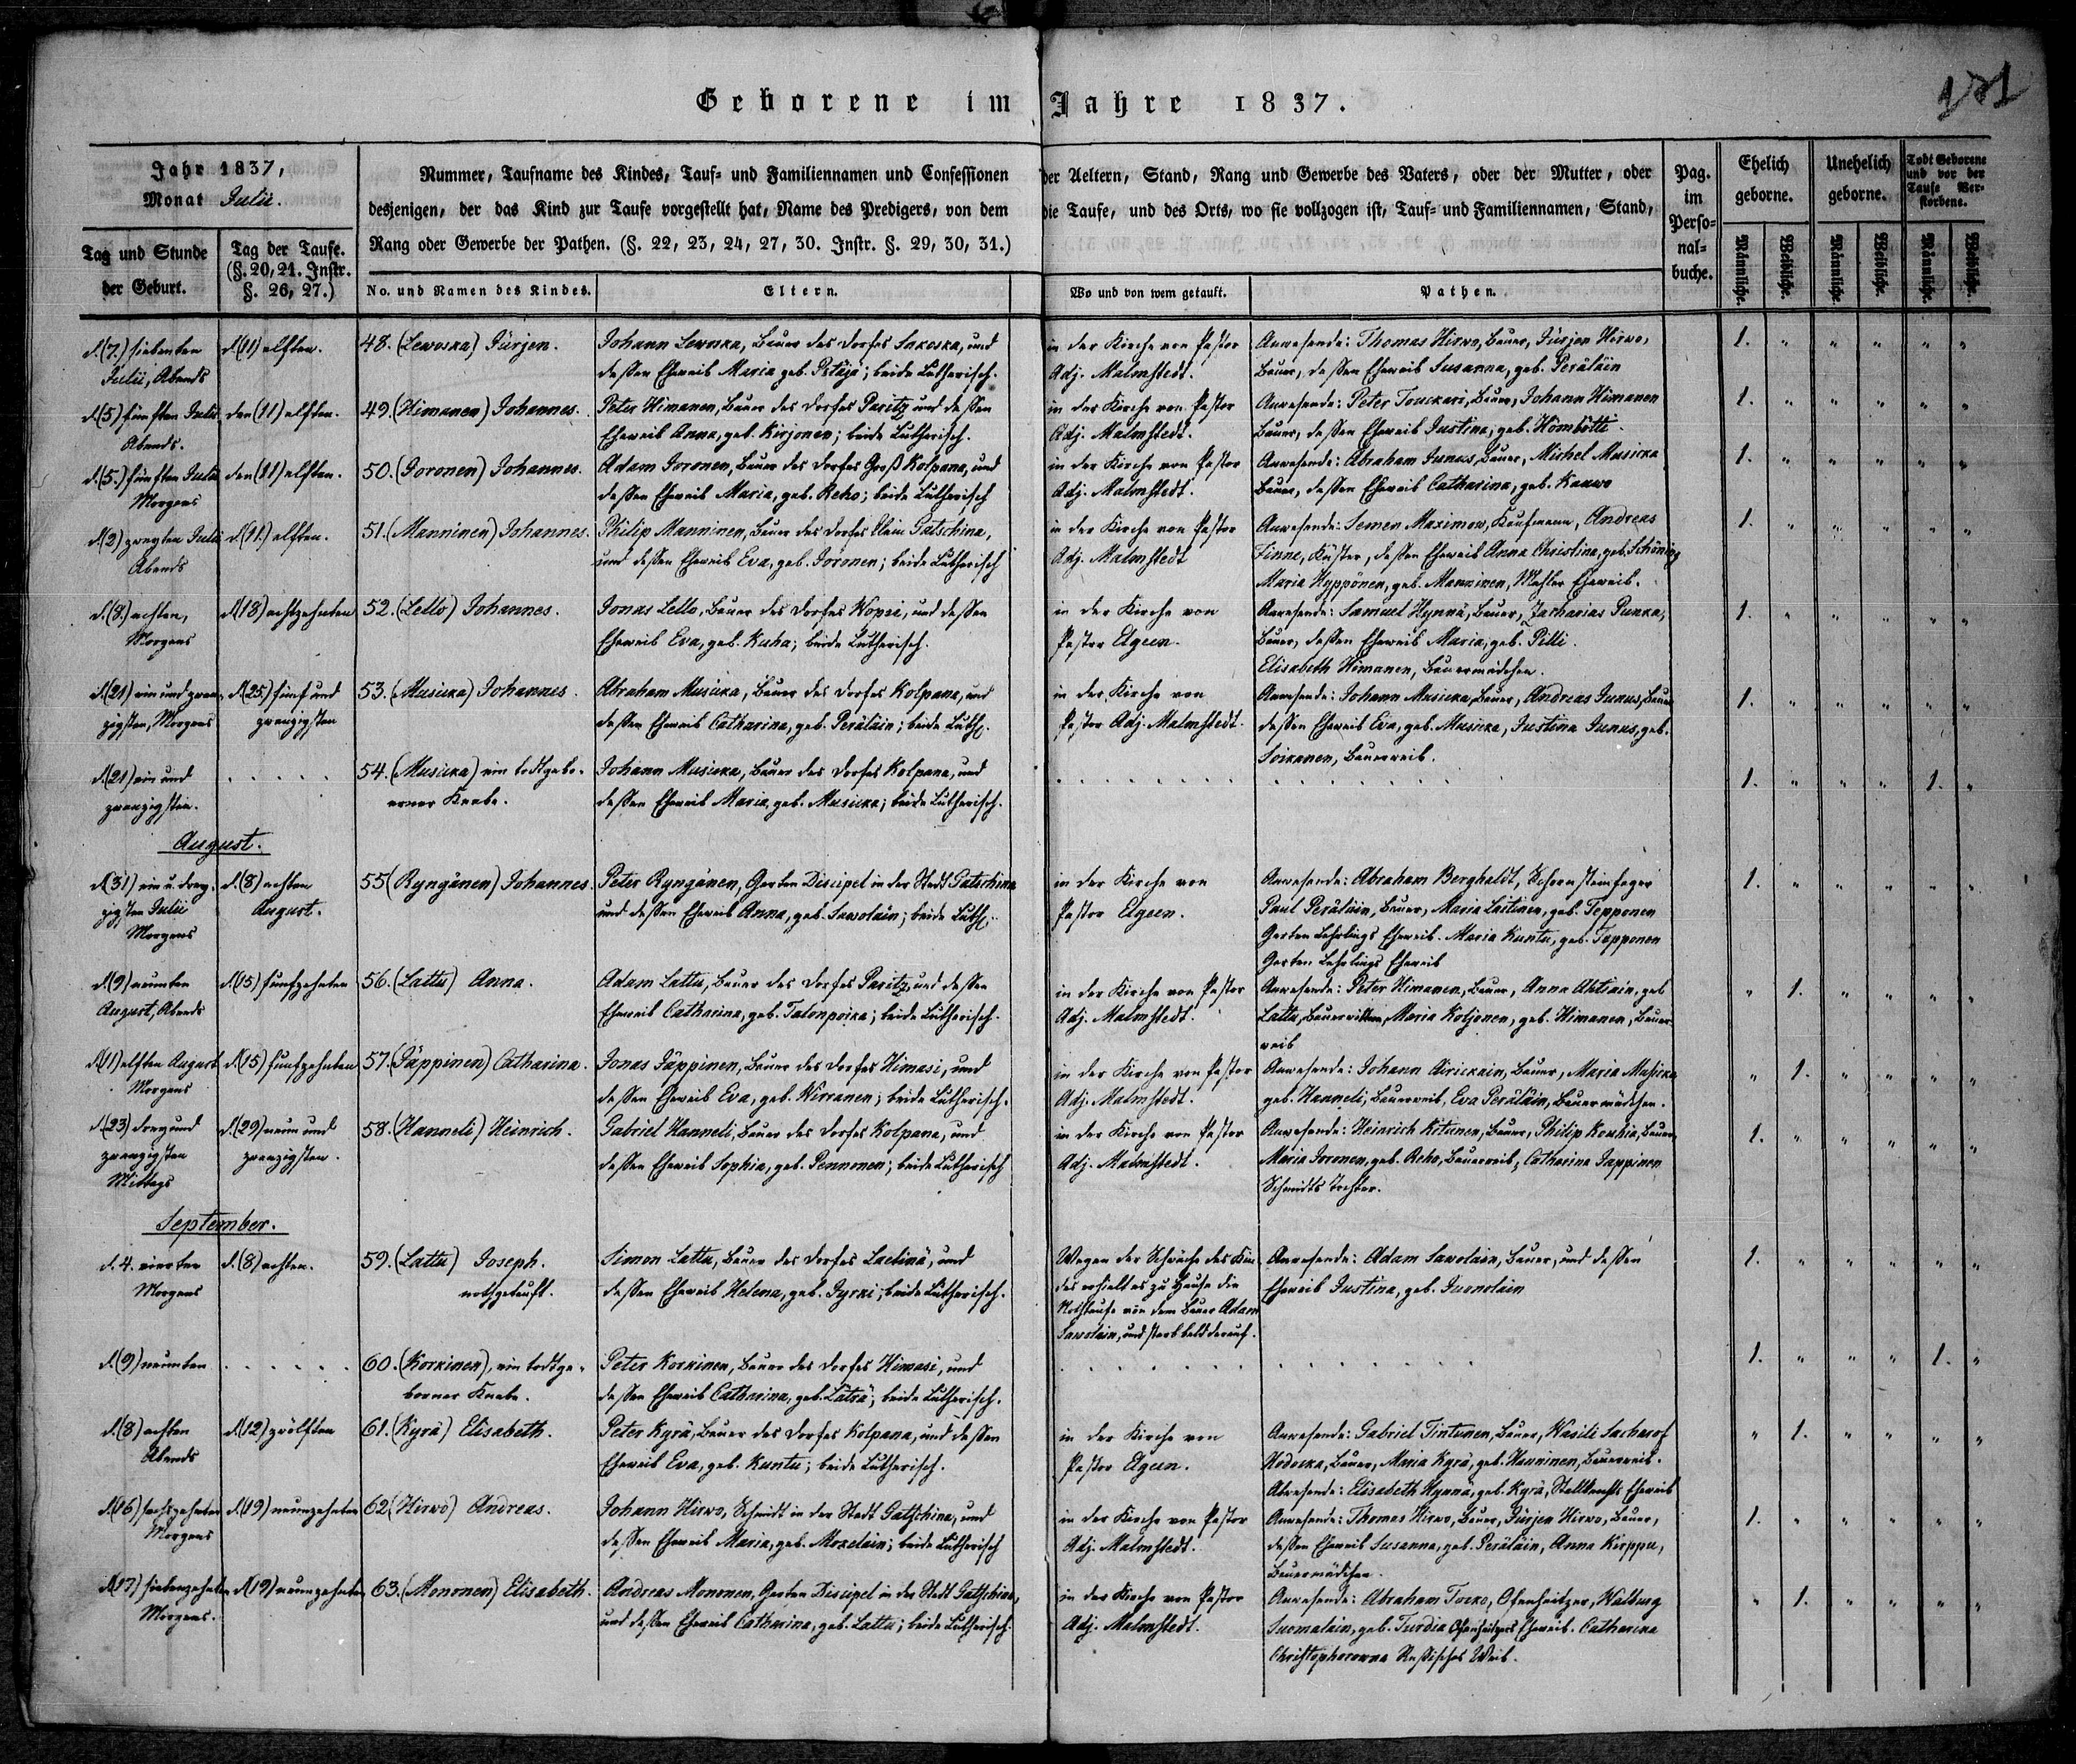 Geborene im Jahre 1837.
Jahr 1837,
Monat Julii.
Nummer, Taufname des Kindes, Tauf- und Familiennamen und Confessionen der Aeltern, Stand, Rang und Gewerbe des Vaters, oder der Mutter, oder
desjenigen, der das Kind zur Taufe vorgestellt hat, Name des Predigers, von dem die Taufe, und des Orts, wo sie vollzogen ist, Tauf- und Familiennamen, Stand,
Rang oder Gewerbe der Pathen. (§. 22, 23, 24, 27, 30. Instr. §. 29, 30, 31.)
Pag. im Perso-nal-buche.
Ehelich geborne.
Unehelich geborne.
Todt Geborene und vor der Taufe Ver-storbene.
Tag und Stunde der Geburt.
Tag der Taufe. (§. 20, 21. Instr. §. 26, 27.)
No. und Namen des Kindes.
Eltern.
Wo und von wem getauft.
Pathen.
Männliche. Weibliche. Männliche. Weibliche. Männliche. Weibliche.
d. (7.) siebenten Julii, Abends
d. (11) elften.
48. (Lewoska) Jürjen.
Johann Lewoska, Bauer des Dorfes Sakoska, und
dessen Eheweib Maria geb. ; beide Lutherisch.
in der Kirche von Pastor
Adj. Malmstedt.
Anwesende: Thomas Hirwo, Bauer, Jürjen Hirwo,
Bauer, dessen Eheweib Susanna, geb. Peräläin
1. " " " " "
d. (5) fünften Julii Abends.
den (11) elften.
49. (Himanen) Johannes.
Peter Himanen, Bauer des Dorfes Paritz und dessen
Eheweib Anna, geb. Kirjonen; beide Lutherisch.
in der Kirche von Pastor
Adj. Malmstedt.
Anwesende: Peter Touckari, Bauer, Johann Himanen
Bauer, dessen Eheweib Justina, geb. Hömbötti.
1. " " " " "
d. (5.) fünften Julii Morgens
den (11) elften.
50. (Soronen) Johannes.
Adam Soronen, Bauer des Dorfes Groß Kolpana, und
dessen Eheweib Maria, geb. Reho; beide Lutherisch
in der Kirche von Pastor
Adj. Malmstedt.
Anwesende: Abraham Junus, Bauer, Michel Musicka
Bauer, dessen Eheweib Catharina, geb. Kauwo
1. " " " " "
d. (2) zweyten Julii Abends
d. (11.) elften.
51. (Manninen) Johannes.
Philip Manninen, Bauer des Dorfes Klein Gatschina,
und dessen Eheweib Eva, geb. Soronen; beide Lutherisch
in der Kirche von Pastor
Adj. Malmstedt
Anwesende: Semen Maximow, Kaufmann, Andreas
Finne, Küster, dessen Eheweib Anna Christina, geb. Schöning
Maria Hyppönen, geb. Manninen, Eheweib.
1. " " " " "
d. (8.) achten, Morgens
d. (18) achtzehnten
52. (Lello) Johannes.
Jonas Lello, Bauer des Dorfes Wopsi, und dessen
Eheweib Eva, geb. Kuha; beide Lutherisch.
in der Kirche von
Pastor Elgeen.
Anwesende: Samuel Hynnä, Bauer, Zacharias Punka,
Bauer, dessen Eheweib Maria, geb. Pilli.
Elisabeth Himanen, Bauermädchen.
1. " " " " "
d. (21) ein und zwanzigsten, Morgens
d. (25.) fünf und zwanzigsten
53. (Musicka) Johannes.
Abraham Musicka, Bauer des Dorfes Kolpana, und
dessen Eheweib Catharina, geb. Peräläin; beide Luth.
in der Kirche von
Pastor Adj. Malmstedt.
Anwesende: Johann Musicka, Bauer, Andreas Junus, Bauer
dessen Eheweib Eva, geb. Musicka, Justina Junus, geb.
Soikanen, Bauerweib.
1. " " " " "
d. (21) ein und zwanzigsten.
54. (Musicka) ein todtgebo-
rener Knabe.
Johann Musicka, Bauer des Dorfes Kolpana, und
dessen Eheweib Maria, geb. Musicka; beide Lutherisch.
1. " " " 1. "
August.
d. (31) ein u. dreyzigsten Julii Morgens
d. (8) achten August.
55 (Ryngänen) Johannes.
Peter Ryngänen, Garten Discipel in der Stadt Gatschina
und dessen Eheweib Anna, geb. Sawolain; beide Luth.
in der Kirche von
Pastor Elgeen.
Anwesende: Abraham Berghaldt, Schornsteinfeger
Paul Peräläin, Bauer, Maria Laitinen, geb. Tepponen
Garten Lehrlings Eheweib. Maria Kuntu, geb. Tepponen
Garten Lehrlings Eheweib
1. " " " " "
d. (9) neunten August, Abends
d. (15) fünfzehnten
56. (Lattu) Anna.
Adam Lattu, Bauer des Dorfes Paritz und dessen
Eheweib Catharina, geb. Talonpoika; beide Lutherisch.
in der Kirche von Pastor
Adj. Malmstedt.
Anwesende: Peter Himanen, Bauer, Anna Ahtiain, geb
Lattu, Bauerwittwe, Maria Koljonen, geb. Himanen, Bauer-
weib
" 1. " " " "
d. (11) elften August Morgens
d. (15) fünfzehnten
57. (Jäppinen) Catharina.
Jonas Jäppinen, Bauer des Dorfes Himasi, und
dessen Eheweib Eva, geb. Wirranen; beide Lutherisch.
in der Kirche von Pastor
Adj. Malmstedt.
Anwesende: Johann Airickain, Bauer, Maria Musicka
geb. Hanneli, Bauerweib, Eva Peräläin, Bauermädchen.
" 1. " " " "
d. (23) drey und zwanzigsten Mittags
d. (29) neun und zwanzigsten.
58. (Hanneli) Heinrich.
Gabriel Hanneli, Bauer des Dorfes Kolpana, und
dessen Eheweib Sophia, geb. Pennonen; beide Lutherisch
in der Kirche von Pastor
Adj. Malmstedt.
Anwesende: Heinrich Kitunen, Bauer, Philip Koukia, Bauer,
Maria Soronen, geb. Reho, Bauerweib, Catharina Jappinen
Schmidts Tochter.
1. " " " " "
September.
d. 4. vierten Morgens
d. (8) achten.
59. (Lattu) Joseph.
nothgetauft.
Simon Lattu, Bauer des Dorfes Laelimä, und
dessen Eheweib Helena, geb. Pyrki; beide Lutherisch.
Wegen der Schwäche des Kin-
des erhielt es zu Hause die
Nothtaufe von dem Bauer Adam
Sawolain, und starb bald darauf.
Anwesende: Adam Sawolain, Bauer, und dessen
Eheweib Justina, geb. Suonolain
1. " " " " "
d. (9) neunten
60. (Korkinen), ein todtge-
borner Knabe.
Peter Korkinen, Bauer des Dorfes Himasi, und
dessen Eheweib Catharina, geb. Läträ; beide Lutherisch.
1. " " " 1. "
d. (8) achten Abends
d. (12) zwölften
61. (Kyrä) Elisabeth.
Peter Kyrä, Bauer des Dorfes Kolpana, und dessen
Eheweib Eva, geb. Kuntu; beide Lutherisch.
in der Kirche von
Pastor Elgeen.
Anwesende: Gabriel Tintunen, Bauer, Wasili Sacharof
Hodoska, Bauer, Maria Kyrä, geb. Hanninen, Bauerweib.
Abwesende: Elisabeth Hynnä, geb. Kyrä, Stallknechts Eheweib
" 1. " " " "
d. (16) sechszehnten Morgens
d. (19) neunzehnten
62. (Hirwo) Andreas.
Johann Hirwo, Schmidt in der Stadt Gatschina, und
dessen Eheweib Maria, geb. Mozelain; beide Lutherisch
in der Kirche von Pastor
Adj. Malmstedt.
Anwesende: Thomas Hirwo, Bauer, Jürjen Hirwo, Bauer,
dessen Eheweib Susanna, geb. Peräläin, Anna Kirppu,
Bauermädchen.
1. " " " " "
d. (17) siebenzehnten Morgens.
d. (19) neunzehnten
63. (Mononen) Elisabeth.
Andreas Mononen, Garten Discipel in der Stadt Gatschina,
und dessen Eheweib Catharina, geb. Lattu; beide Lutherisch.
in der Kirche von Pastor
Adj. Malmstedt.
Anwesende: Abraham Tocko, Ofenheitzer, Walburg
Suomalain, geb. Turdia Ofenheitzers Eheweib. Catharina
Christophorowna Russisches Weib.
" 1. " " " "